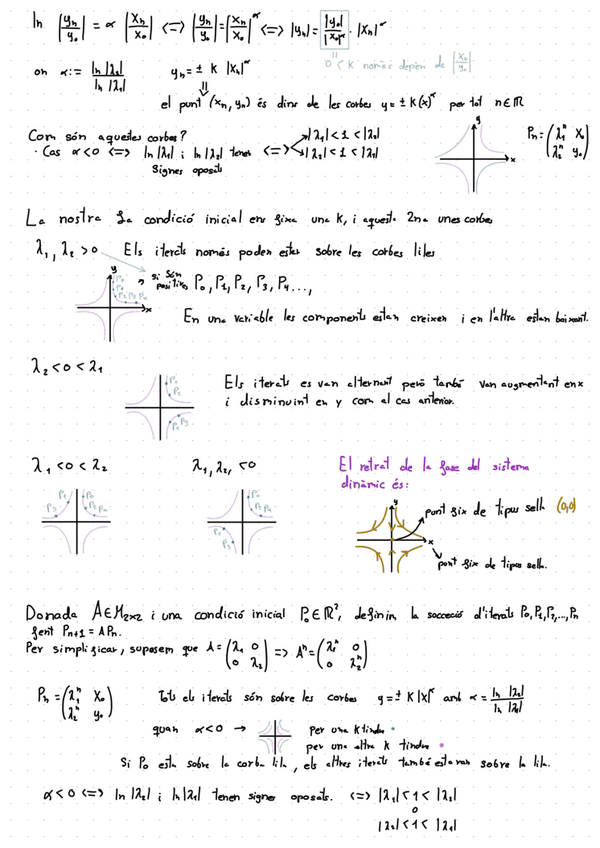 ln |yn/y0| = α |xn/x0| <=> |yn/y0| = |xn/x0|^α <=> |yn| = |y0|/|x0|^α · |xn|^α
on α := ln|λ2|/ln|λ1| yn = ± K |xn|^α
0 < K només depèn de |x0/y0|
el punt (xn, yn) és dins de les corbes y = ± K(x)^α per tot n∈ℝ
Com són aquestes corbes?
· Cas α<0 <=> ln|λ1| i ln|λ2| tenen signes oposats <=> |λ1|<1<|λ2|
|λ2|<1<|λ1|
y
x
Pn = (λ1^n x0
λ2^n y0)
La nostra condició inicial ens fixa una K, i aquesta 2na unes corbes
λ1, λ2 > 0 Els iterats només poden estar sobre les corbes liles
si són positius P0, P1, P2, P3, P4 ...,
y
x
En una variable les components estan creixen i en l'altra estan baixant.
λ2 < 0 < λ1
Els iterats es van alternant però també van augmentant en x
i disminuint en y com al cas anterior.
λ1 < 0 < λ2 λ1, λ2, < 0 El retrat de la fase del sistema
dinàmic és:
y
x
punt fix de tipus sella (0,0)
punt fix de tipus sella.
Donada A∈M2x2 i una condició inicial P0∈ℝ², definim la successió d'iterats P0, P1, P2, ..., Pn
fent Pn+1 = APn.
Per simplificar, suposem que A = (λ1 0
0 λ2) => A^n = (λ1^n 0
0 λ2^n)
Pn = (λ1^n x0
λ2^n y0) Tots els iterats són sobre les corbes y = ± K|x|^α amb α = ln|λ2|/ln|λ1|
quan α<0 → per una K tindrem
per una altra K tindrem
Si P0 esta sobre la corba lila, els altres iterats també estaran sobre la lila.
α<0 <=> ln|λ2| i ln|λ1| tenen signes oposats. <=> |λ1|<1<|λ2|
o
|λ2|<1<|λ1|